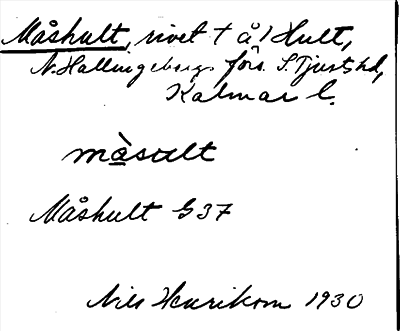 Måshult, rivet t å / Hult,
N. Hallingebergs förs. S. Tjusts hd,
Kalmar l.
mȧsult
Måshult G 37
Nils Henrikson 1930